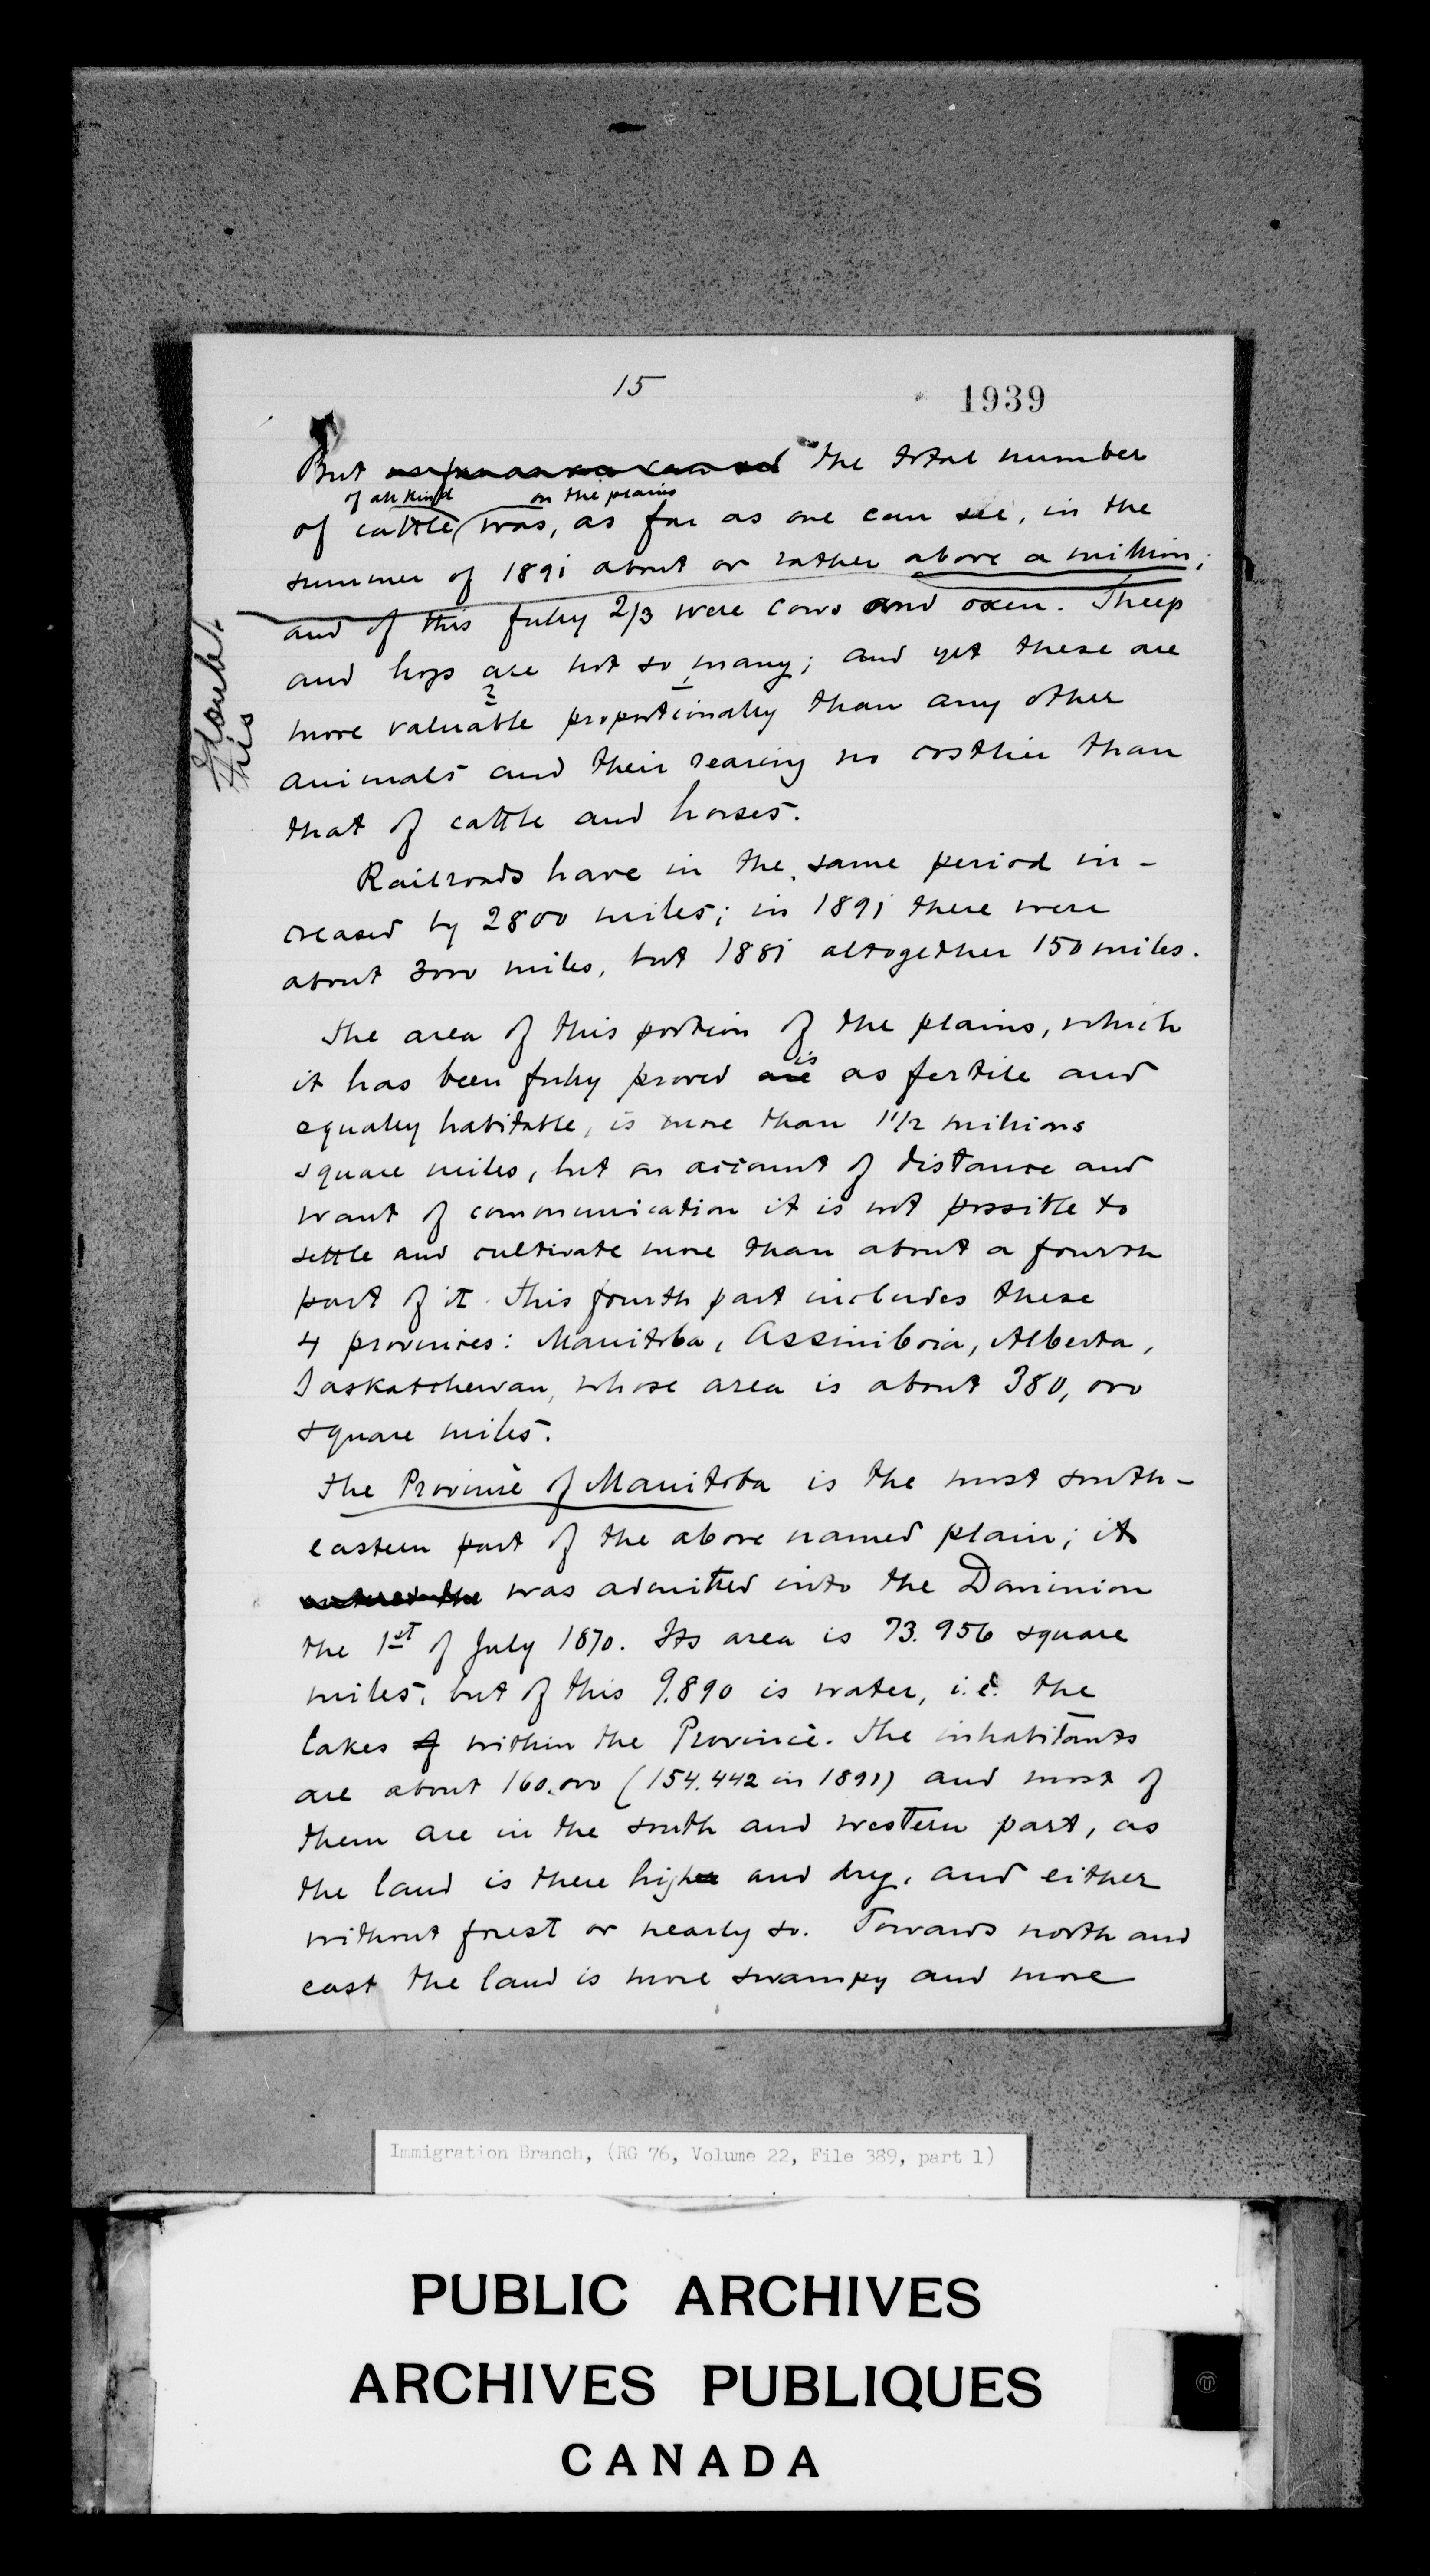 15
1939
But as far as we can see the total number
of all kind on the plains
of cattle was, as far as one can see, in the
summer of 1891 about or rather above a million;
and of this fully 2/3 were cows and oxen. Sheep
and hogs are not so many; and yet these are
?
more valuable proportionally than any other
animals and their rearing no costlier than
that of cattle and horses.
I doubt
this
Railroads have in the same period in-
creased by 2800 miles; in 1891 there were
about 3000 miles, but 1881 altogether 150 miles.
The area of this portion of the plains, which
is
it has been fully proved are as fertile and
equally habitable, is more than 1 1/2 millions
square miles, but on account of distance and
want of communication it is not possible to
settle and cultivate more than about a fourth
part of it. This fourth part includes these
4 provinces: Manitoba, Assiniboia, Alberta,
Saskatchewan, whose area is about 380,000
square miles.
The Province of Manitoba is the most south-
eastern part of the above named plain; it
was admitted into the Dominion
the 1st of July 1870. Its area is 73.956 square
miles, but of this 9.890 is water, i.e. the
lakes of within the Province. The inhabitants
are about 160.000 (154.442 in 1891) and most of
them are in the south and western part, as
the land is there higher and dry, and either
without forest or nearly so. Towards north and
east the land is more swampy and more
Immigration Branch, (RG 76, Volume 22, File 389, part 1)
PUBLIC ARCHIVES
ARCHIVES PUBLIQUES
CANADA